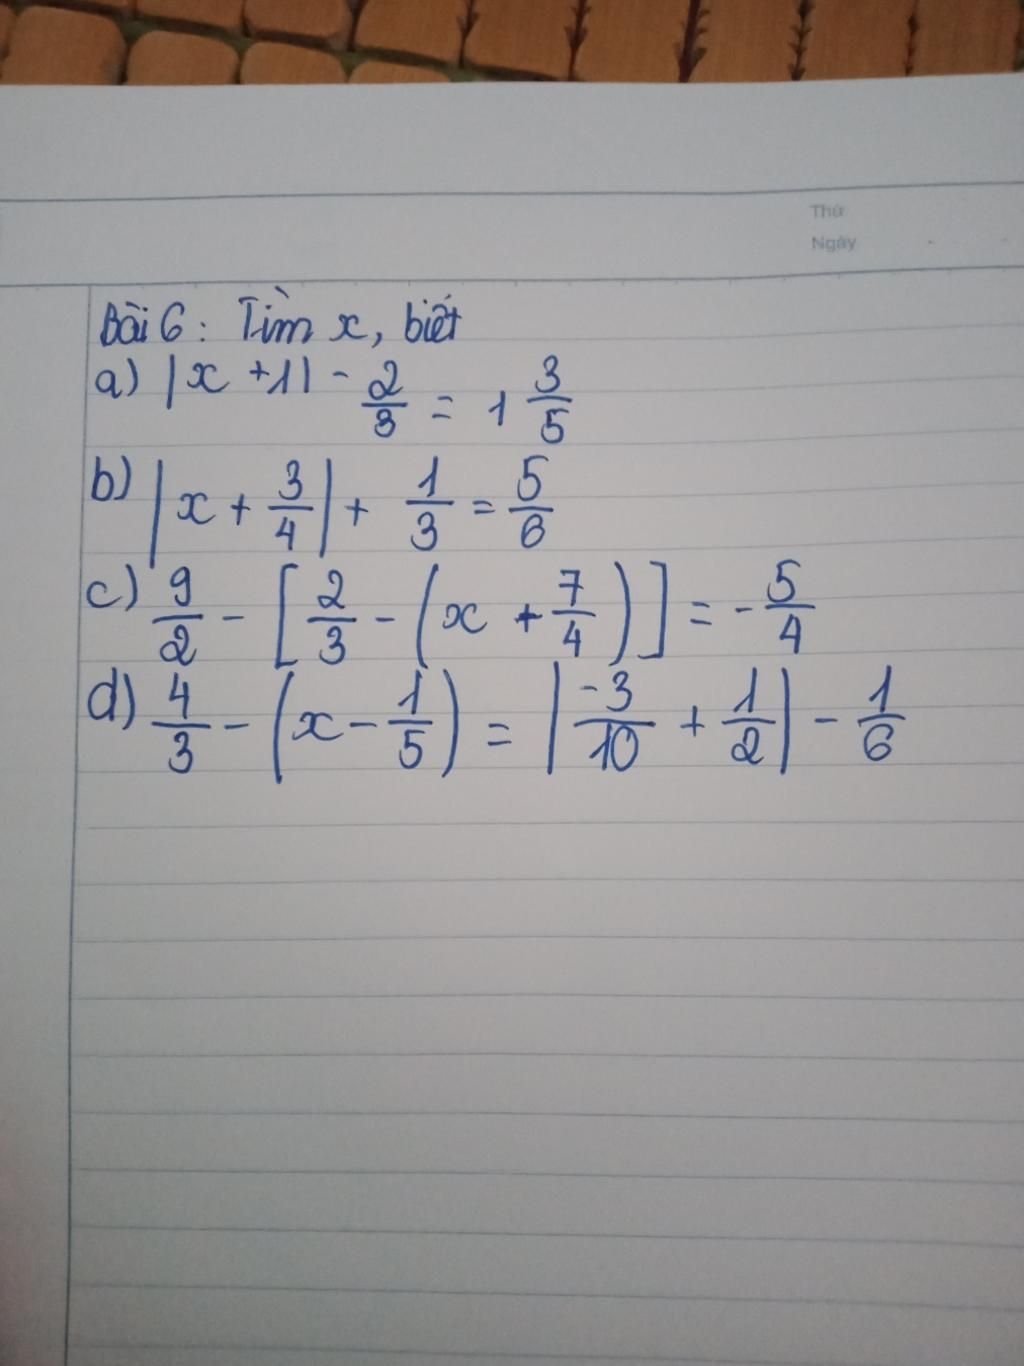 Thứ
Ngày
Bài 6: Tìm x, biết
a) |x + 1| - 2/3 = 1 3/5
b) |x + 3/4| + 1/3 = 5/6
c) 9/2 - [2/3 - (x + 7/4)] = -5/4
d) 4/3 - (x - 1/5) = |-3/10 + 1/2| - 1/6